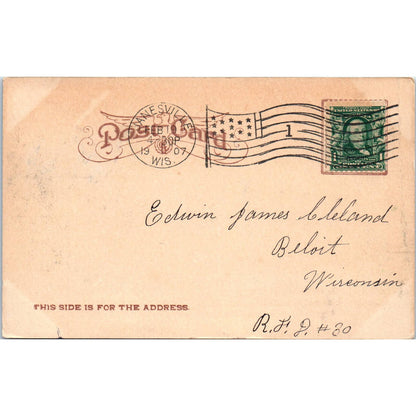 Post Card
JANESVILLE
FEB
1907
WIS.
1
1 1
Edwin James Cleland
Beloit
Wisconsin
THIS SIDE IS FOR THE ADDRESS.
R.F.D. #30